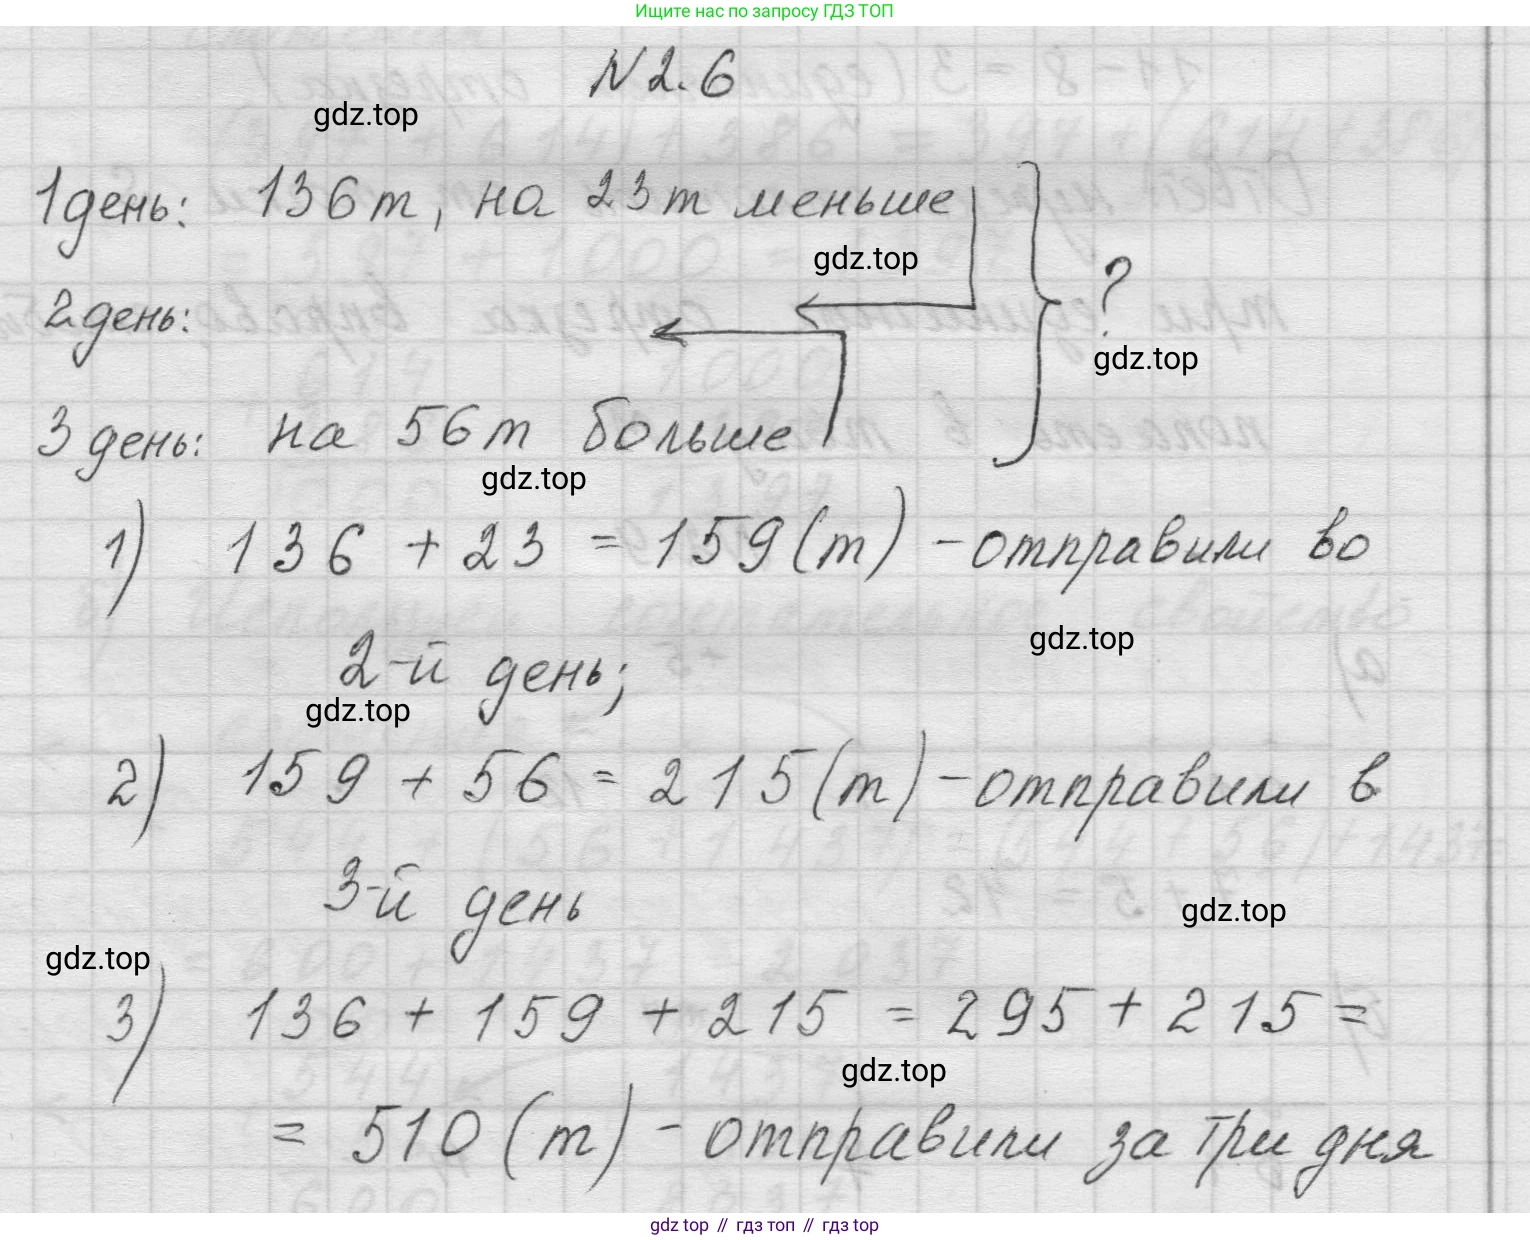 Ищите нас по запросу ГДЗ ТОП
N 2.6
gdz.top
1 день: 136 т, на 23 т меньше
gdz.top
2 день:
?
gdz.top
3 день: на 56 т больше
gdz.top
1) 136 + 23 = 159 (т) - отправили во
gdz.top
2-й день;
gdz.top
2) 159 + 56 = 215 (т) - отправили в
3-й день
gdz.top
gdz.top
3) 136 + 159 + 215 = 295 + 215 =
gdz.top
= 510 (т) - отправили за три дня
gdz top // гдз топ // гдз top